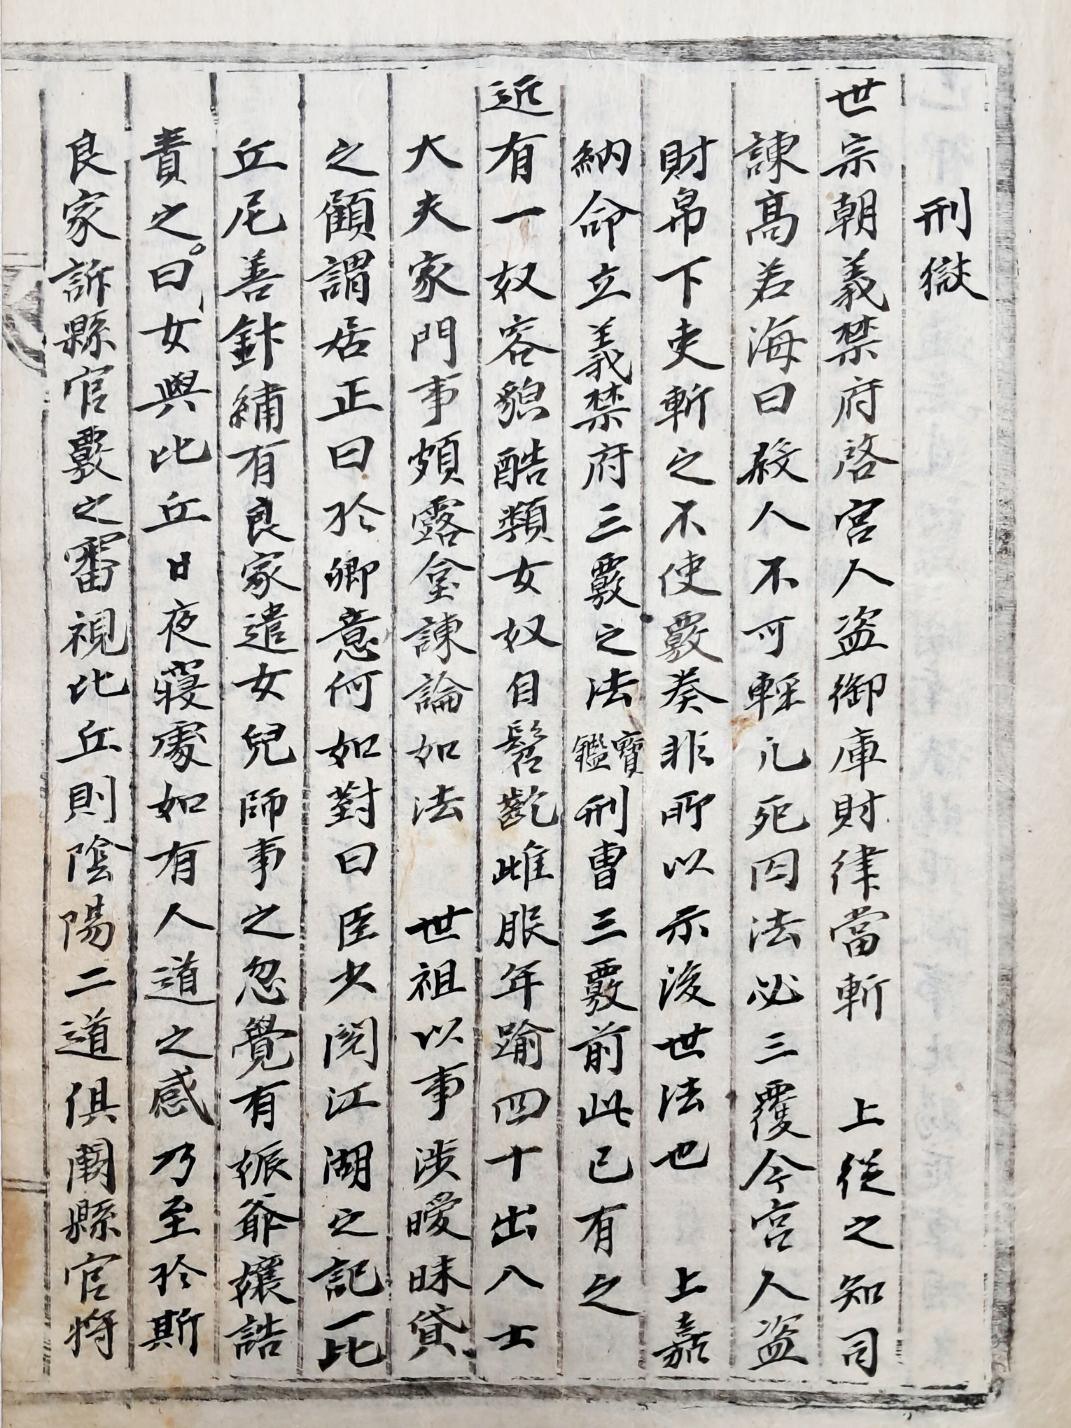 刑獄
世宗朝義禁府啓宮人盜御庫財律當斬 上從之知司
諫高若海曰殺人不可輕凡死囚法必三覆今宮人盜
財帛下吏斬之不使覈奏非所以示後世法也 上嘉
納命立義禁府三覈之法寶鑑刑曹三覈前此已有之
近有一奴容貌酷類女奴自髫齔雌服年踰四十出入士
大夫家門事頗露臺諫論如法 世祖以事涉曖昧貸
之顧謂居正曰於卿意何如對曰臣少閱江湖之記一比
丘尼善針繡有良家遣女兒師事之忽覺有娠爺孃詰
責之曰女與比丘日夜寢處如有人道之感乃至於斯
良家訴縣官覈之審視比丘則陰陽二道俱闕縣官將